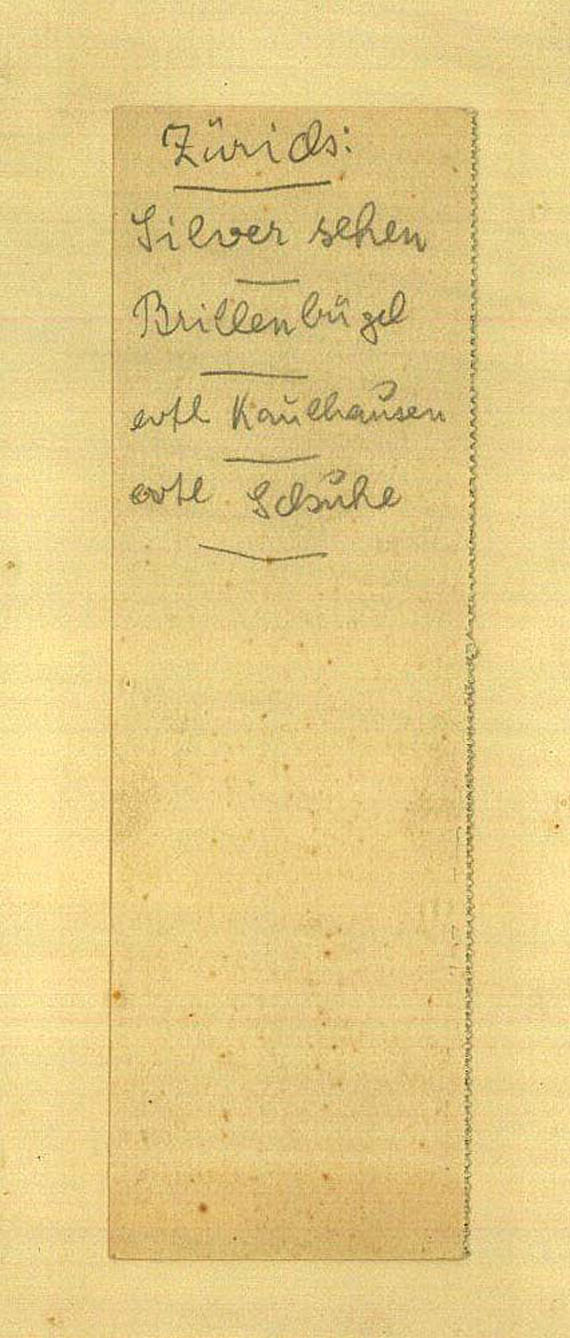 Zürich:
Silver sehen
Brillenbügel
evtl Kaulhausen
evtl Schuhe